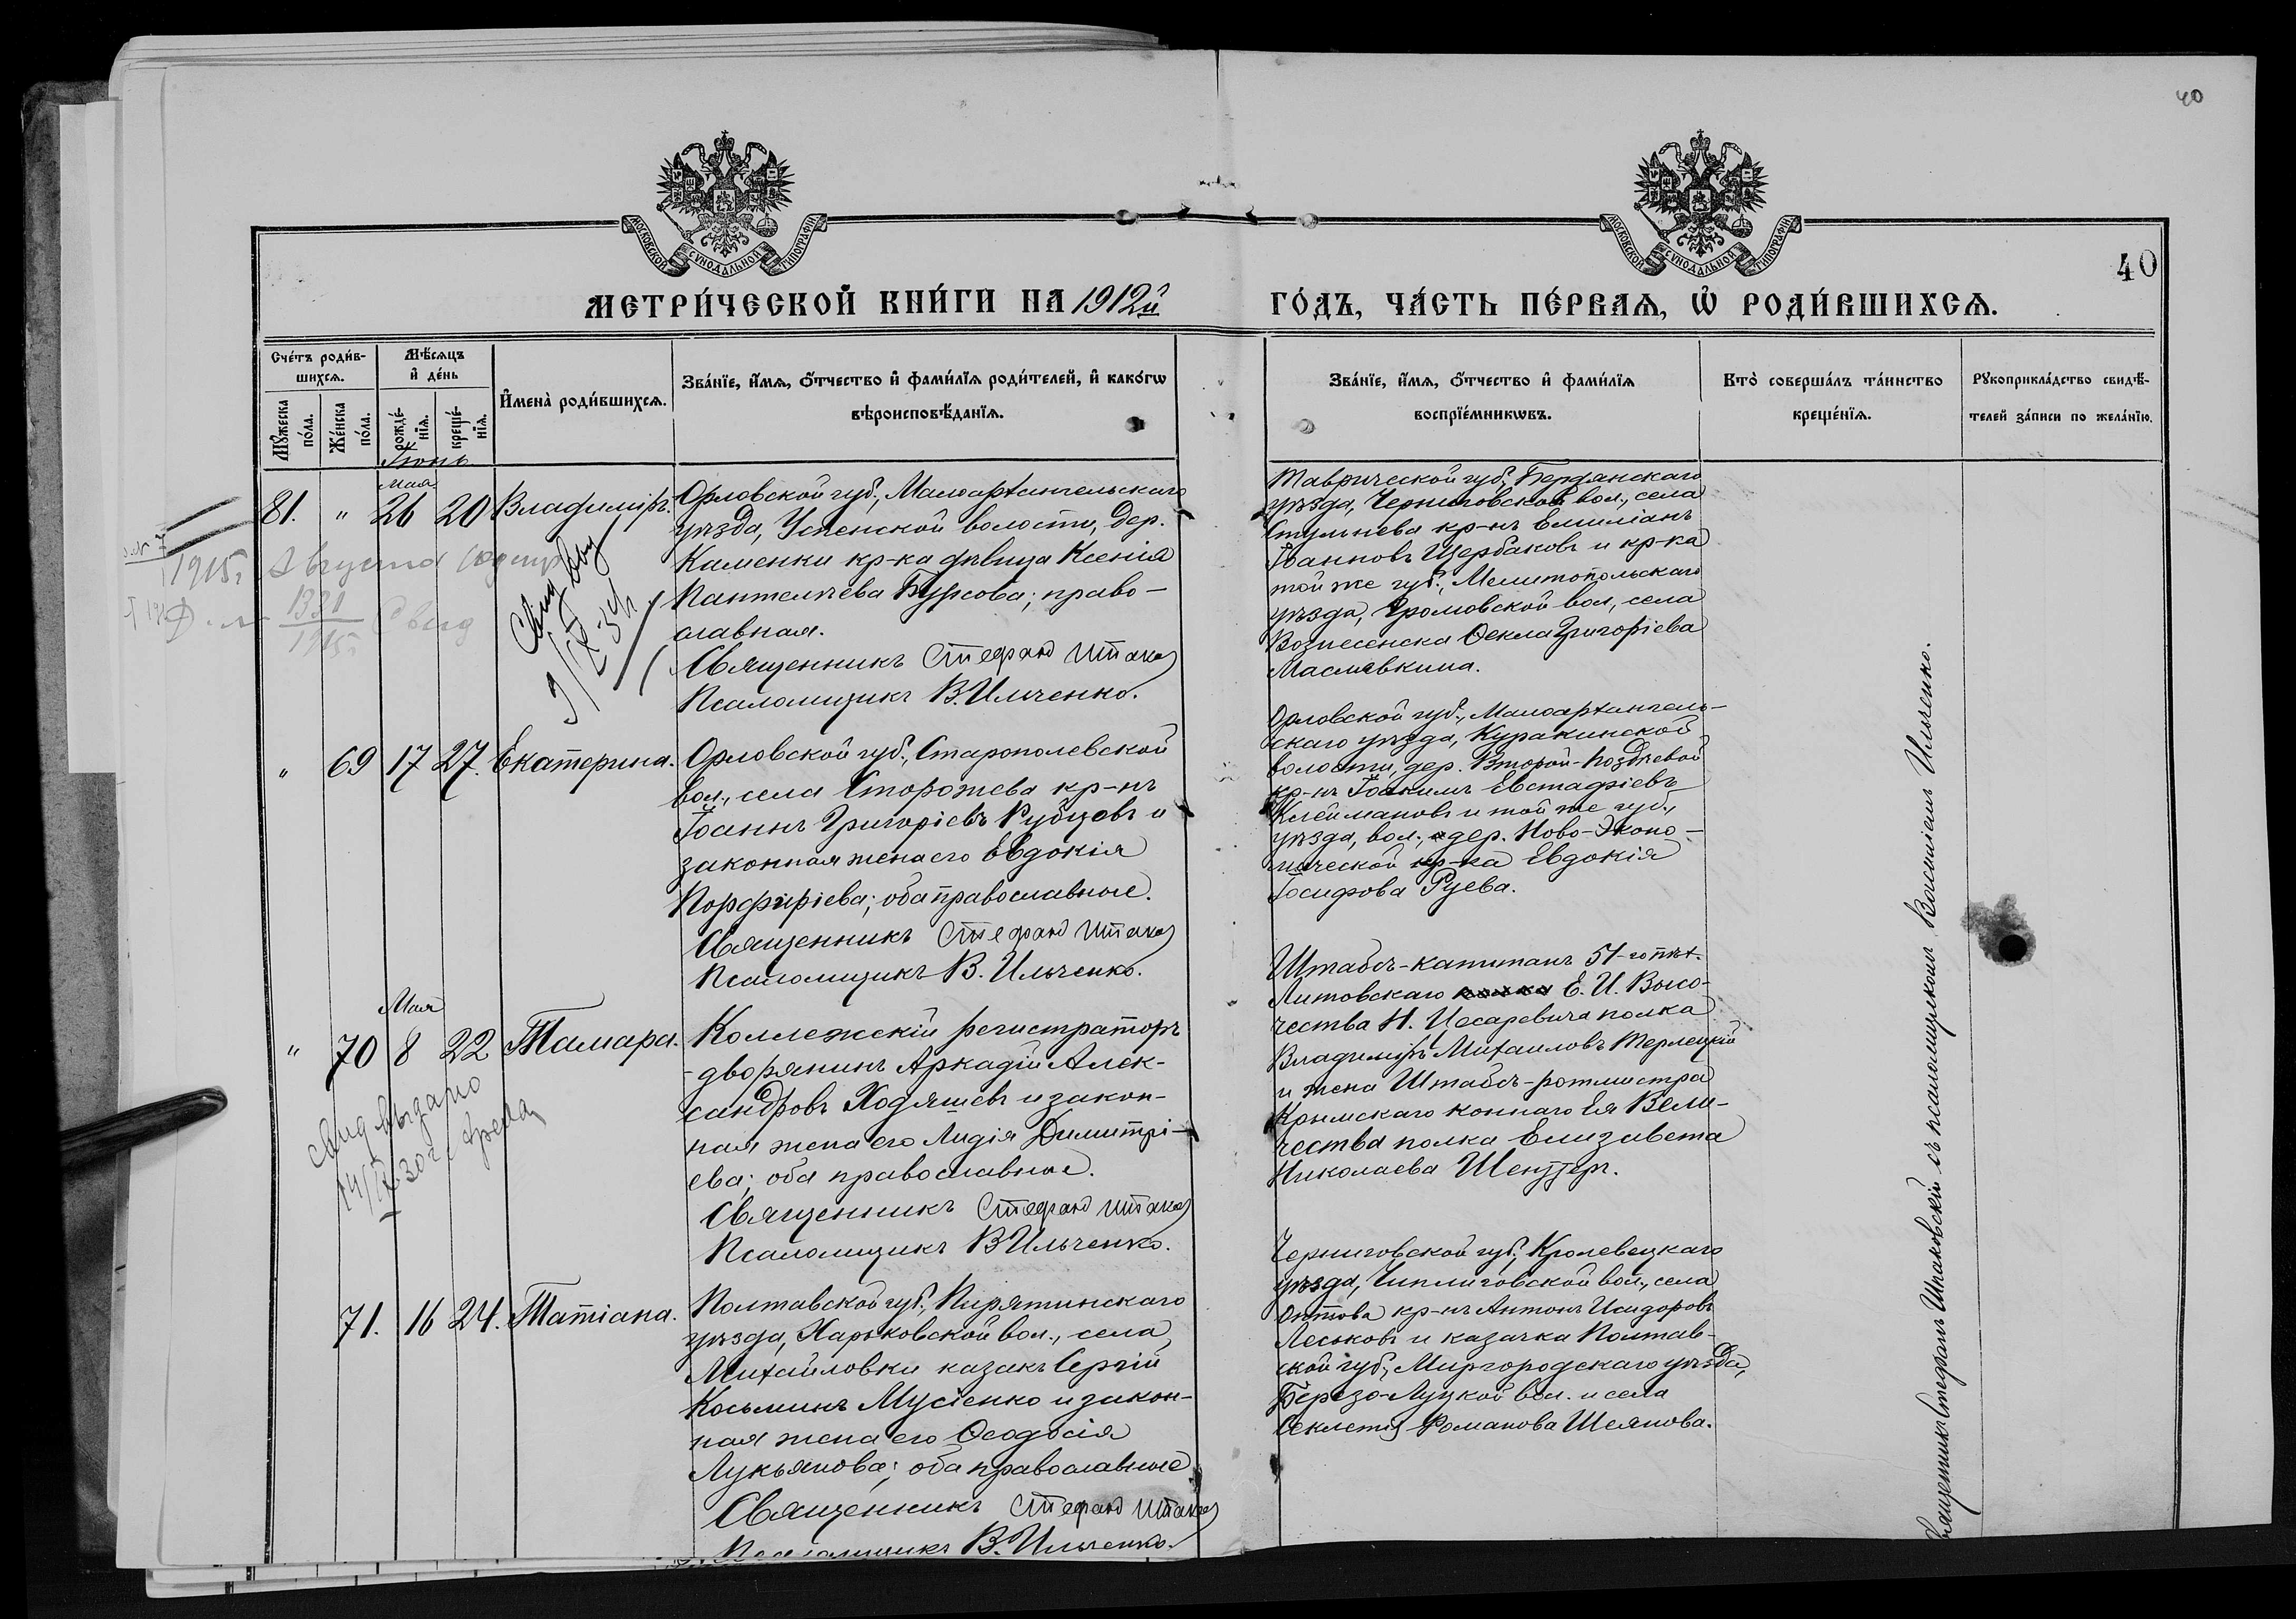 40
МОСКОВСКОЙ СѴНОДАЛЬНОЙ ТИПОГРАФІИ
МОСКОВСКОЙ СѴНОДАЛЬНОЙ ТИПОГРАФІИ
40
МЕТРИ́ЧЕСКОЙ КНИ́ГИ НА 1912й
ГО́ДЪ, ЧА́СТЬ ПЕ́РВАѦ, Ѡ҆ РОДИ́ВШИХСѦ.
Сче́тъ роди́в-
шихсѧ.
Мꙋжеска по́ла.
Же́нска по́ла.
Мѣ́сѧцъ
и҆ де́нь
рожде́-
нїѧ.
креще́-
нїѧ.
И҆мена̀ роди́вшихсѧ.
Зва́нїе, и҆́мѧ, ѻ҆́тчество и҆ фами́лїѧ роди́телей, и҆ како́гѡ
вѣроисповѣ́данїѧ.
Зва́нїе, и҆́мѧ, ѻ҆́тчество и҆ фами́лїѧ
воспрїе́мникѡвъ.
Кто̀ соверша́лъ та́инство
креще́нїѧ.
Рꙋкоприкла́дство свидѣ́-
телей за́писи по жела́нїю.
Іюнь
Мая
81. " 26 20 Владиміръ.
Орловской губ., Малоархангельскаго
уѣзда, Успенской волости, дер.
Каменки кр-ка дѣвица Ксенія
Пантелѣева Бурсова; право-
славная.
Священникъ Стефанъ
Псаломщикъ В. Ильченко.
Таврической губ., Бердянскаго
уѣзда, Черниговской вол., села
Стульнева кр-нъ Емиліанъ
Іоанновъ Щербаковъ и кр-ка
той же губ., Мелитопольскаго
уѣзда, Громовской вол., села
Вознесенска Ѳекла Григоріева
Маслявкина.
1915г. Августа
1915г. Свид
Свид выд
" 69 17 27. Екатерина.
Орловской губ., Старополевской
вол., села Сторожева кр-нъ
Іоаннъ Григоріевъ Рубцовъ и
законная жена его Евдокія
Порфиріева; оба православные.
Священникъ Стефанъ
Псаломщикъ В. Ильченко.
Орловской губ., Малоархангель-
скаго уѣзда, Куракинской
волости, дер. Второй-Поздѣевой
кр-нъ Іоакимъ Евстафіевъ
Клеймановъ и той же губ.,
уѣзда, вол., дер. Ново-Эконо-
мической кр-ка Евдокія
Іосифова Руева.
Мая
" 70 8 22 Тамара.
Коллежскій регистраторъ
-дворянинъ Аркадій Алек-
сандровъ Ходяшевъ и закон-
ная жена его Лидія Димитрі-
ева; оба православные.
Священникъ Стефанъ
Псаломщикъ В Ильченко.
Штабсъ-капитанъ 51-го пѣх.
Литовскаго Е. И. Высо-
чества Н. Цесаревича полка
Владиміръ Михаиловъ Терлецкій
и жена Штабсъ-ротмистра
Крымскаго коннаго Ея Вели-
чества полка Елизавета
Николаева
свид выдано
71. 16 24. Татіана.
Полтавской губ., Пирятинскаго
уѣзда, Харьковской вол., села
Михайловки казакъ Сергій
Косьминъ Мусіенко и закон-
ная жена его Ѳеодосія
Лукьянова; оба православные
Священникъ Стефанъ
Псаломщикъ В. Ильченко.
Черниговской губ., Кролевецкаго
уѣзда, вол., села
кр-нъ Антонъ Исидоровъ
Леськовъ и казачка Полтав-
ской губ., Миргородскаго уѣзда,
Березо-Луцкой вол. и села
Секлетія Романова Шеянова.
Священникъ Стефанъ Шпаковскій съ псаломщикомъ Василіемъ Ильченко.